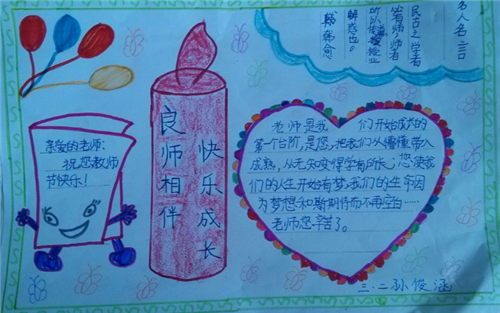 名人名言
古之学者
必有师,师者
所以传授业
解惑也。
韩愈
亲爱的老师:
祝您教师
节快乐!
良师相伴
快乐成长
老师是我们开始成长的
第一个台阶,是您,把我们从懵懂带入
成熟,从无知变得学有所长;您使我
们的人生开始有梦,我们的生命因
为梦想和期待而不再空白……
老师您辛苦了。
三.二孙俊涵